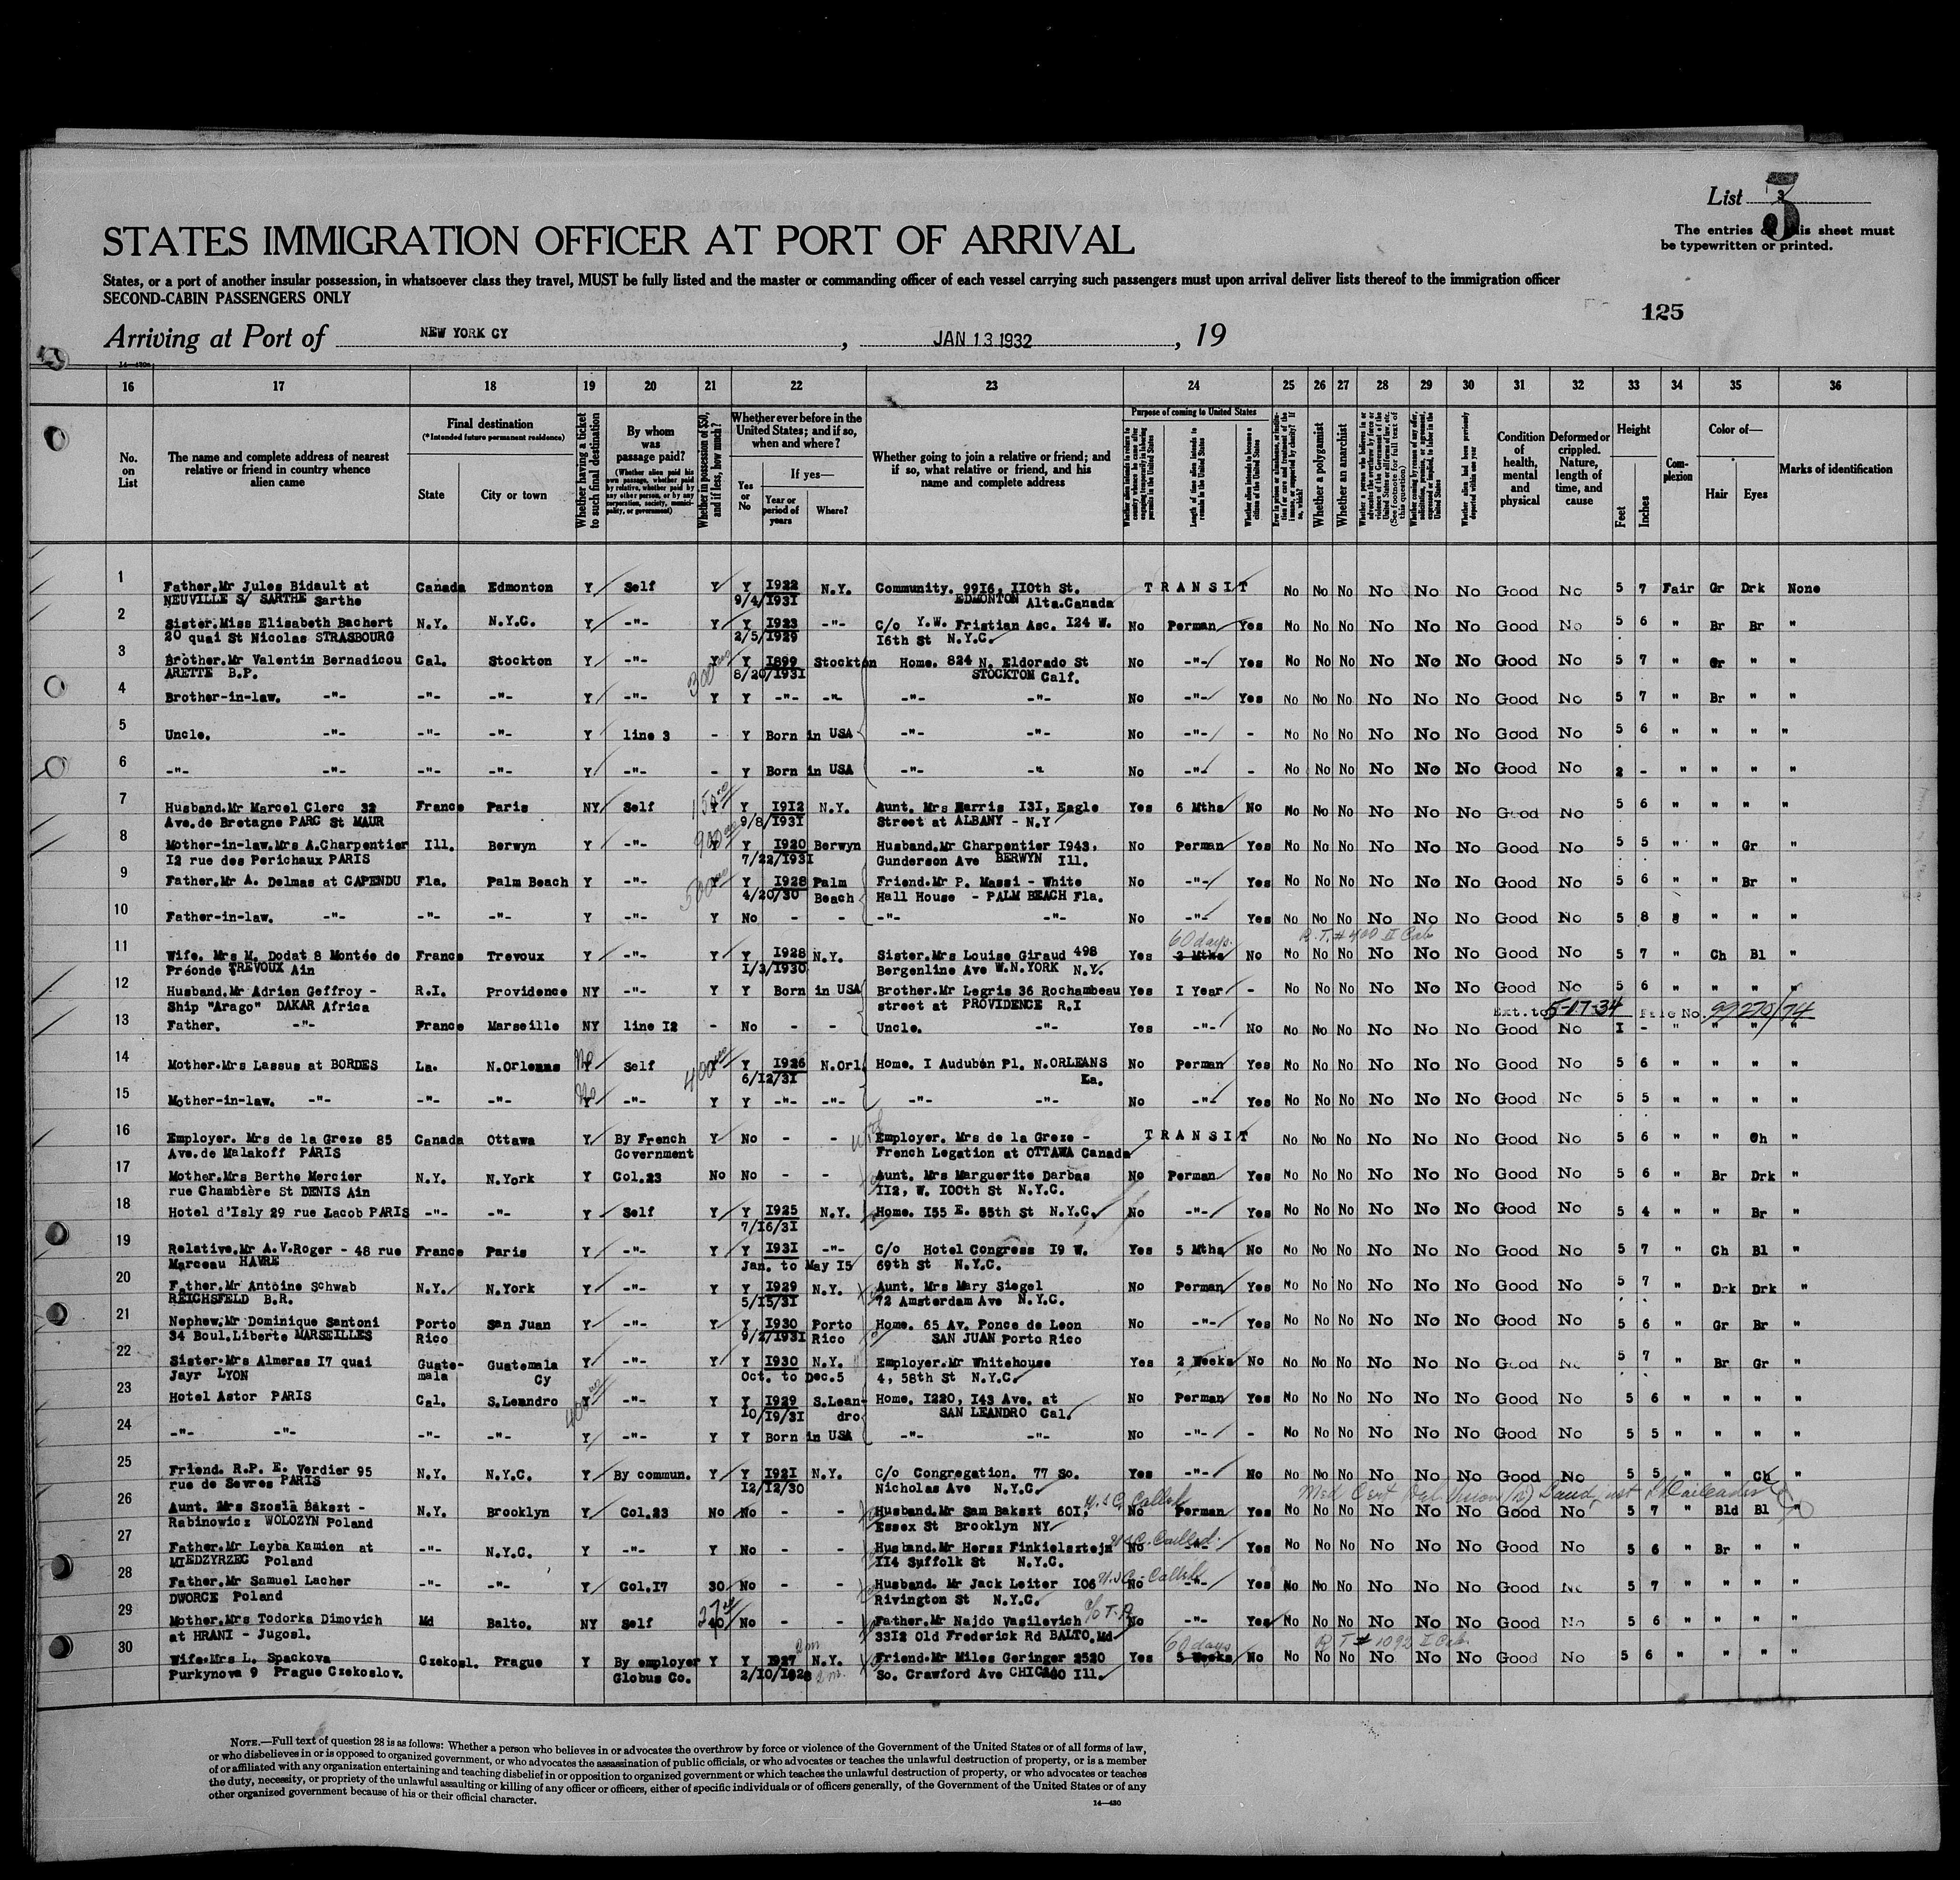 List 3
3
The entries on this sheet must
be typewritten or printed.
STATES IMMIGRATION OFFICER AT PORT OF ARRIVAL
States, or a port of another insular possession, in whatsoever class they travel, MUST be fully listed and the master or commanding officer of each vessel carrying such passengers must upon arrival deliver lists thereof to the immigration officer
SECOND-CABIN PASSENGERS ONLY
125
Arriving at Port of NEW YORK CY , JAN 13 1932 , 19
16 17 18 19 20 21 22 23 24 25 26 27 28 29 30 31 32 33 34 35 36
No. on List
The name and complete address of nearest relative or friend in country whence alien came
Final destination (*Intended future permanent residence)
State
City or town
Whether having a ticket to such final destination
By whom was passage paid?
(Whether alien paid his own passage, whether paid by relative, whether paid by any other person, or by any corporation, society, municipality, or government)
Whether in possession of $50, and if less, how much?
Whether ever before in the United States; and if so, when and where?
Yes or No
If yes—
Year or period of years
Where?
Whether going to join a relative or friend; and if so, what relative or friend, and his name and complete address
Purpose of coming to United States
Length of time alien intends to remain in the United States
Whether a polygamist
Whether an anarchist
(See footnote for full text of this question)
Condition of health, mental and physical
Deformed or crippled. Nature, length of time, and cause
Height
Feet
Inches
Complexion
Color of—
Hair
Eyes
Marks of identification
1 Father.Mr Jules Bidault at Canada Edmonton Y Self Y Y 1922 N.Y. Community. 9916, 110th St. TRANSIT No No No No No No Good No 5 7 Fair Gr Drk None
NEUVILLE S/ SARTHE Sarthe 9/4/1931 EDMONTON Alta.Canada
2 Sister.Miss Elisabeth Bachert N.Y. N.Y.C. Y -"- Y Y 1923 -"- C/o Y.W. Fristian Asc. 124 W. No Perman Yes No No No No No No Good No 5 6 " Br Br "
20 quai St Nicolas STRASBOURG 2/5/1929 16th St N.Y.C.
3 Brother.Mr Valentin Bernadicou Cal. Stockton Y -"- Y Y 1899 Stockton Home. 824 N. Eldorado St No -"- Yes No No No No No No Good No 5 7 " Gr " "
ARETTE B.P. 300 8/20/1931 STOCKTON Calf.
4 Brother-in-law. -"- -"- -"- Y -"- Y Y -"- -"- -"- -"- No -"- Yes No No No No No No Good No 5 7 " Br " "
5 Uncle. -"- -"- -"- Y line 3 - Y Born in USA -"- -"- No -"- - No No No No No No Good No 5 6 " " " "
6 -"- -"- -"- -"- Y -"- - Y Born in USA -"- -" No -"- - No No No No No No Good No 2 - " " " "
7 Husband.Mr Marcel Clerc 32 France Paris NY Self 150 Y Y 1912 N.Y. Aunt. Mrs Harris 131, Eagle Yes 6 Mths No No No No No No No Good No 5 6 " " " "
Ave.de Bretagne PARC St MAUR 9/8/1931 Street at ALBANY - N.Y
8 Mother-in-law.Mrs A.Charpentier Ill. Berwyn Y -"- 900 Y Y 1920 Berwyn Husband.Mr Charpentier 1943, No Perman Yes No No No No No No Good No 5 5 " " Gr "
12 rue des Perichaux PARIS 7/22/1931 Gunderson Ave BERWYN Ill.
9 Father.Mr A. Delmas at CAPENDU Fla. Palm Beach Y -"- 500 Y Y 1928 Palm Friend.Mr P. Massi - White No -"- Yes No No No No No No Good No 5 6 " " Br "
4/20/30 Beach Hall House - PALM BEACH Fla.
10 Father-in-law. -"- -"- -"- Y -"- Y No - - -"- -"- No -"- Yes No No No No No No Good No 5 8 " " " "
60 days. R.T.#400 II Cab
11 Wife. Mrs M. Dodat 8 Montée de France Trevoux Y -"- Y Y 1928 N.Y. Sister.Mrs Louise Giraud 498 Yes 2 Mths No No No No No No No Good No 5 7 " Ch Bl "
Préonde TREVOUX Ain 1/3/1930 Bergenline Ave W.N.YORK N.Y.
12 Husband.Mr Adrien Geffroy - R.I. Providence NY -"- Y Y Born in USA Brother.Mr Legris 36 Rochambeau Yes 1 Year - No No No No No No Good No 5 6 " " " "
Ship "Arago" DAKAR Africa street at PROVIDENCE R.I
Ext. to 5-17-34 File No. 99270/74
13 Father. -"- France Marseille NY line 12 - No - - Uncle. -"- Yes -"- No No No No No No No Good No 1 - " " " "
14 Mother.Mrs Lassus at BORDES La. N.Orleans No Y Self 400 Y Y 1926 N.Orl Home. 1 Audubén Pl. N.ORLEANS No Perman Yes No No No No No No Good No 5 6 " " " "
6/12/31 La.
15 Mother-in-law. -"- -"- -"- No Y -"- Y Y -"- -"- -"- -"- No -"- Yes No No No No No No Good No 5 5 " " " "
16 Employer. Mrs de la Greze 85 Canada Ottawa Y By French Y No - - Employer. Mrs de la Greze - TRANSIT No No No No No No Good No 5 6 " " Ch "
Ave.de Malakoff PARIS Government French Legation at OTTAWA Canada
17 Mother.Mrs Berthe Mercier N.Y. N.York Y Col.23 No No - - Aunt. Mrs Marguerite Darbas No Perman Yes No No No No No No Good No 5 6 " Br Drk "
rue Chambière St DENIS Ain 112, W. 100th St N.Y.C.
18 Hotel d'Isly 29 rue Lacob PARIS -"- -"- Y Self Y Y 1925 N.Y. Home. 155 E. 55th St N.Y.C. No -"- Yes No No No No No No Good No 5 4 " " Br "
7/16/31
19 Relative.Mr A.V.Roger - 48 rue France Paris Y -"- Y Y 1931 -"- C/o Hotel Congress 19 W. Yes 5 Mths No No No No No No No Good No 5 7 " Ch Bl "
Marceau HAVRE Jan. to May 15 69th St N.Y.C.
20 Father.Mr Antoine Schwab N.Y. N.York Y -"- Y Y 1929 N.Y. Aunt. Mrs Mary Siegel No Perman Yes No No No No No No Good No 5 7 " Drk Drk "
REICHSFELD B.R. 5/15/31 72 Amsterdam Ave N.Y.C.
21 Nephew.Mr Dominique Santoni Porto San Juan Y -"- Y Y 1930 Porto Home. 65 Av. Ponce de Leon No -"- Yes No No No No No No Good No 5 6 " Gr Br "
34 Boul.Liberte MARSEILLES Rico 9/2/1931 Rico SAN JUAN Porto Rico
22 Sister.Mrs Almeras 17 quai Guate- Guatemala Y -"- Y Y 1930 N.Y. Employer.Mr Whitehouse Yes 2 Weeks No No No No No No No Good No 5 7 " Br Gr "
Jayr LYON mala Cy Oct. to Dec.5 4, 58th St N.Y.C.
23 Hotel Astor PARIS Cal. S.Leandro Y -"- Y Y 1929 S.Lean- Home. 1220, 143 Ave. at No Perman Yes No No No No No No Good No 5 6 " " " "
400 10/19/31 dro SAN LEANDRO Cal.
24 -"- -"- -"- -"- Y -"- Y Y Born in USA -"- -"- No -"- - No No No No No No Good No 5 5 " " " "
25 Friend. R.P. E. Verdier 95 N.Y. N.Y.C. Y By commun. Y Y 1921 N.Y. C/o Congregation. 77 So. Yes -"- No No No No No No No Good No 5 5 " " Ch "
rue de Sevres PARIS 12/12/30 Nicholas Ave N.Y.C.
26 Aunt. Mrs Szosia Bakszt - N.Y. Brooklyn Y Col.23 No No - - Husband.Mr Sam Bakszt 601, No Perman Yes No No No No No No Good No 5 7 " Bld Bl "
Rabinowicz WOLOZYN Poland Essex St Brooklyn NY
27 Father.Mr Leyba Kamien at -"- N.Y.C. Y -"- Y No - - Husband.Mr Hersz Finkielsztejn No -"- Yes No No No No No No Good No 5 6 " Br " "
MIEDZYRZEC Poland 114 Suffolk St N.Y.C.
28 Father.Mr Samuel Lacher -"- -"- Y Col.17 30 No - - Husband. Mr Jack Leiter 106 No -"- Yes No No No No No No Good No 5 7 " " " "
DWORCE Poland Rivington St N.Y.C.
29 Mother.Mrs Todorka Dimovich Md Balto. NY Self 27 40 No - - Father.Mr Najdo Vasilevich No -"- Yes No No No No No No Good No 5 6 " " " "
at HRANI - Jugosl. 3312 Old Frederick Rd BALTO.Md
60 days R T # 1092 II Cab.
30 Wife.Mrs L. Spackova Czekosl. Prague Y By employer Y Y 1927 N.Y. Friend.Mr Miles Geringer 2520 Yes 5 Weeks No No No No No No No Good No 5 6 " " " "
Purkynova 9 Prague Czekoslov. Globus Co. 2/10/1928 So. Crawford Ave CHICAGO Ill.
NOTE.—Full text of question 28 is as follows: Whether a person who believes in or advocates the overthrow by force or violence of the Government of the United States or of all forms of law,
or who disbelieves in or is opposed to organized government, or who advocates the assassination of public officials, or who advocates or teaches the unlawful destruction of property, or is a member
of or affiliated with any organization entertaining and teaching disbelief in or opposition to organized government or which teaches the unlawful destruction of property, or who advocates or teaches
the duty, necessity, or propriety of the unlawful assaulting or killing of any officer or officers, either of specific individuals or of officers generally, of the Government of the United States or of any
other organized government because of his or their official character.
14—430